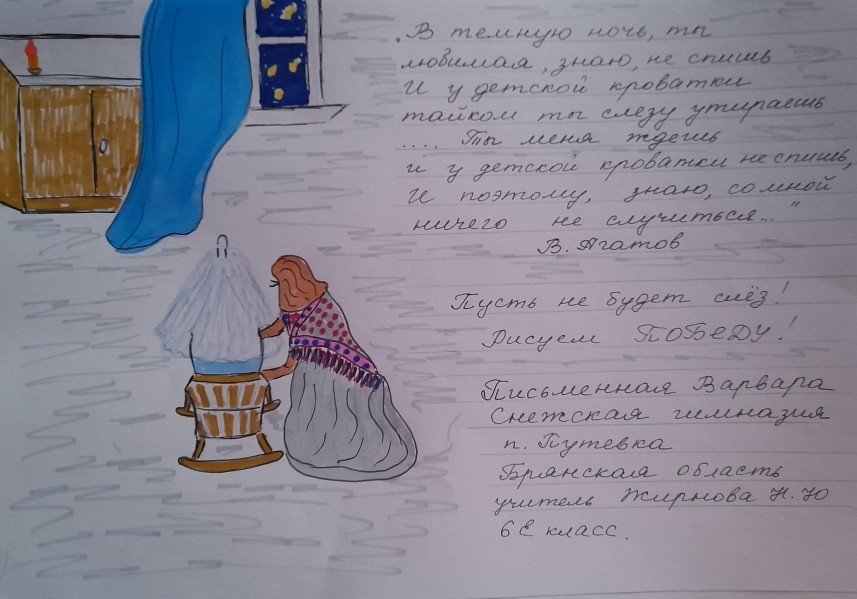 „В темную ночь, ты
любимая, знаю, не спишь
И у детской кроватки
тайком ты слезу утираешь
.... Ты меня ждешь
и у детской кроватки не спишь,
И поэтому, знаю, со мной
ничего не случиться..."
В. Агатов
Пусть не будет слёз!
Рисуем ПОБЕДУ!
Письменная Варвара
Снежская гимназия
п. Путевка
Брянская область
учитель Жирнова Н.Ю
6 Е класс.